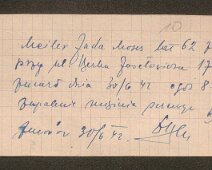 10
Meiler Jada Moses lat 62 z
przy ul Berka Joselewicza 17
zmarł dnia 30/6 42 o godz 8
zapalenie mięśnia sercowego
30/6 42.